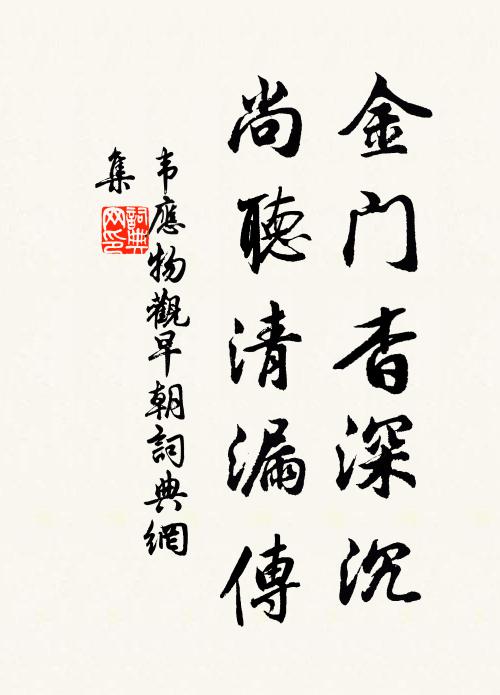 金门杳深沉
尚聽清漏傳
韦應物觀早朝詞典網
集
詞典
网印